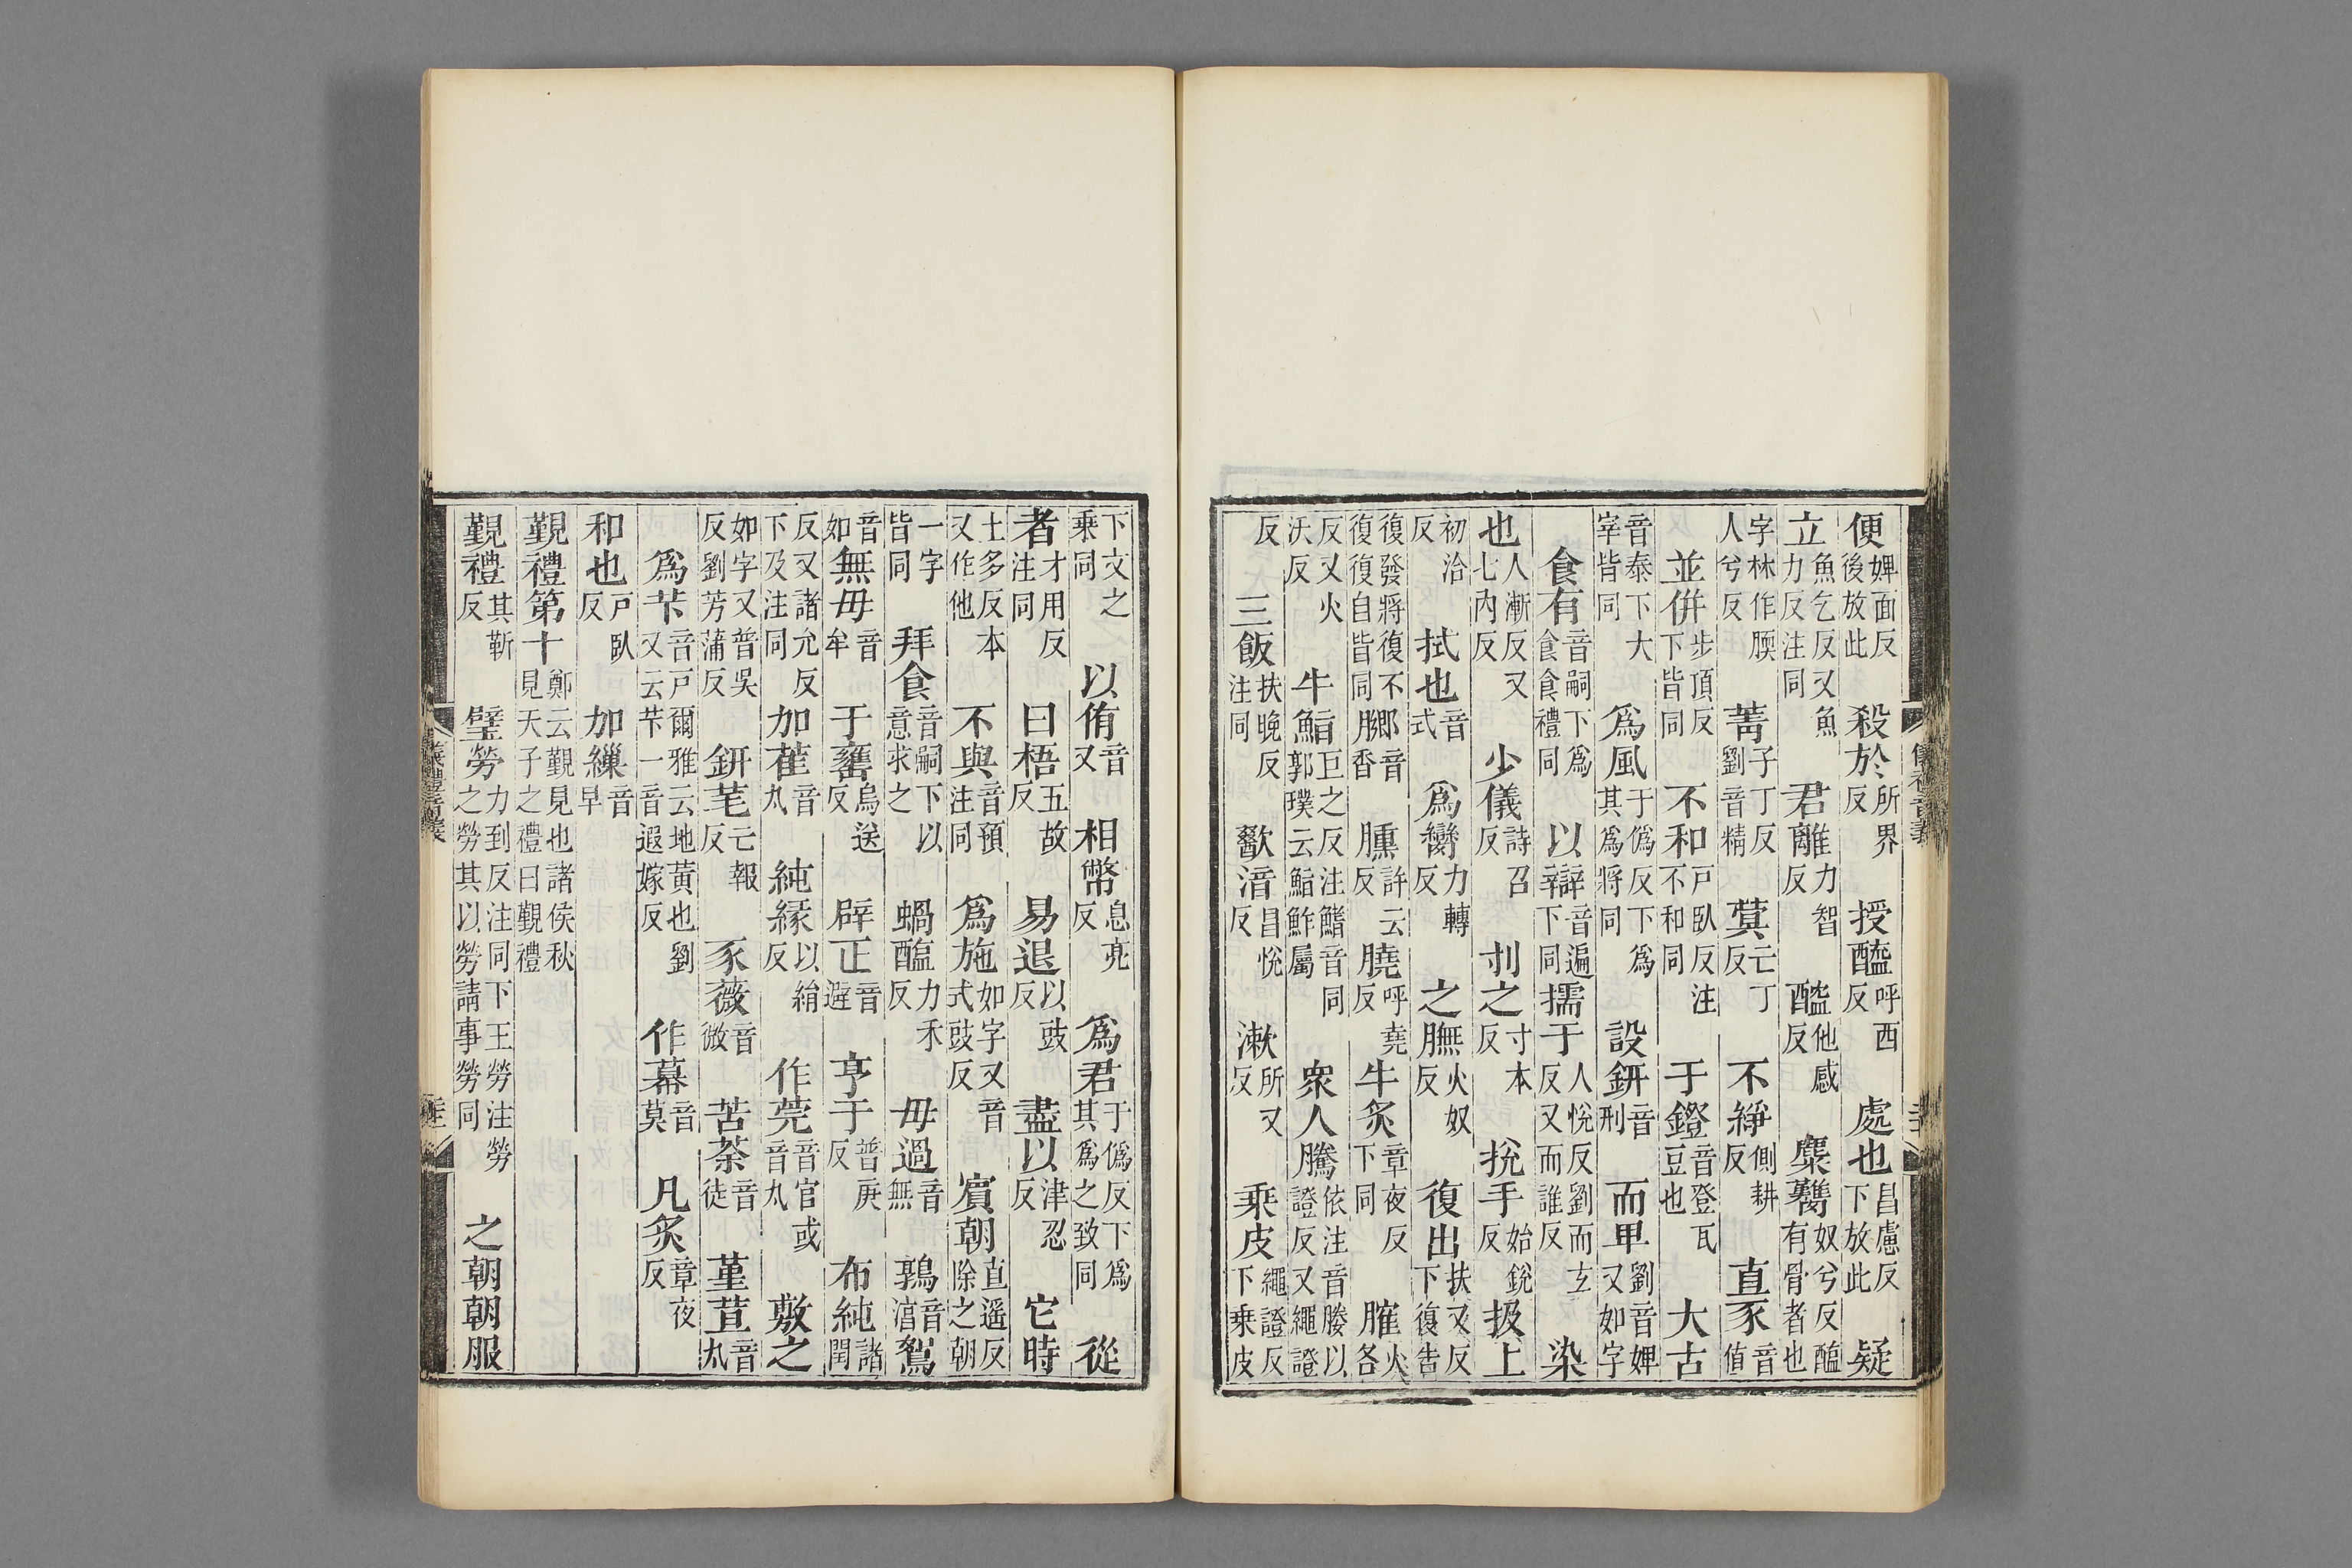 便婢面反後放此殺於所界反授醯呼西反處也昌慮反下放此疑
立魚乞反又魚力反注同君離力智反醓他感反麋臡奴兮反醢有骨者也
字林作腝人兮反菁子丁反劉音精蓂亡丁反不綪側耕反直豕音值
並併步頂反下皆同不和戶臥反注不和同于鐙音登瓦豆也大古
音泰下大宰皆同爲風于僞反下爲其爲將同設鉶音刑而卑劉音婢又如字
食有音嗣下爲食食禮同以辯音遍下同擩于人悅反劉而玄反又而誰反染
也人漸反又七內反少儀詩召反刌之寸本反挩手始銳反扱上
初洽反拭也音式爲臠力轉反之膴火奴反復出扶又反下復告
復發將復不復復自皆同膷音香臐許云反膮呼堯反牛炙章夜反下同臛火各
反又火沃反牛鮨巨之反注鰭音同郭璞云鮨鮓屬衆人騰依注音媵以證反又繩證
反三飯扶晚反注同歠湆昌悅反漱所又反乘皮繩證反下乗皮
下文之乗同以侑音又相幣息亮反爲君于僞反下爲其爲之致同從
者才用反注同曰梧五故反易退以豉反盡以津忍反它時
士多反本又作他不與音預注同爲施如字又音式豉反賔朝直遥反除之朝
一字皆同拜食音嗣下以意求之蝸醢力禾反毋過音無鶉音㵧鴽
音如無毋音牟于饔烏送反辟正音避亨于普庚反布純諸閏
反又諸允反下及注同加萑音丸純緣以絹反作莞音官或音丸敷之
如字又普吳反劉芳蒲反鉶芼亡報反豕薇音微苦荼音徒菫荁音丸
爲芐音戶爾雅云地黃也劉又云芐一音遐嫁反作幕音莫凡炙章夜反
和也戶臥反加繅音早
覲禮第十鄭云覲見也諸侯秋見天子之禮曰覲禮
覲禮其靳反璧勞力到反注同下王勞注勞之勞其以勞請事勞勞同之朝朝服